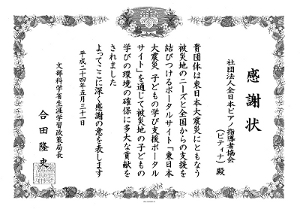 感謝状
社団法人全日本ピアノ指導者協会
(ピティナ) 殿
貴団体は東日本大震災にともなう
被災地のニーズと全国からの支援を
結びつけるポータルサイト「東日本
大震災 子どもの学び支援ポータル
サイト」を通じて被災地の子どもの
学びの環境の確保に多大な貢献を
されました
よってここに深く感謝の意を表します
平成二十四年五月三十一日
文部科学省生涯学習政策局長
合田隆史